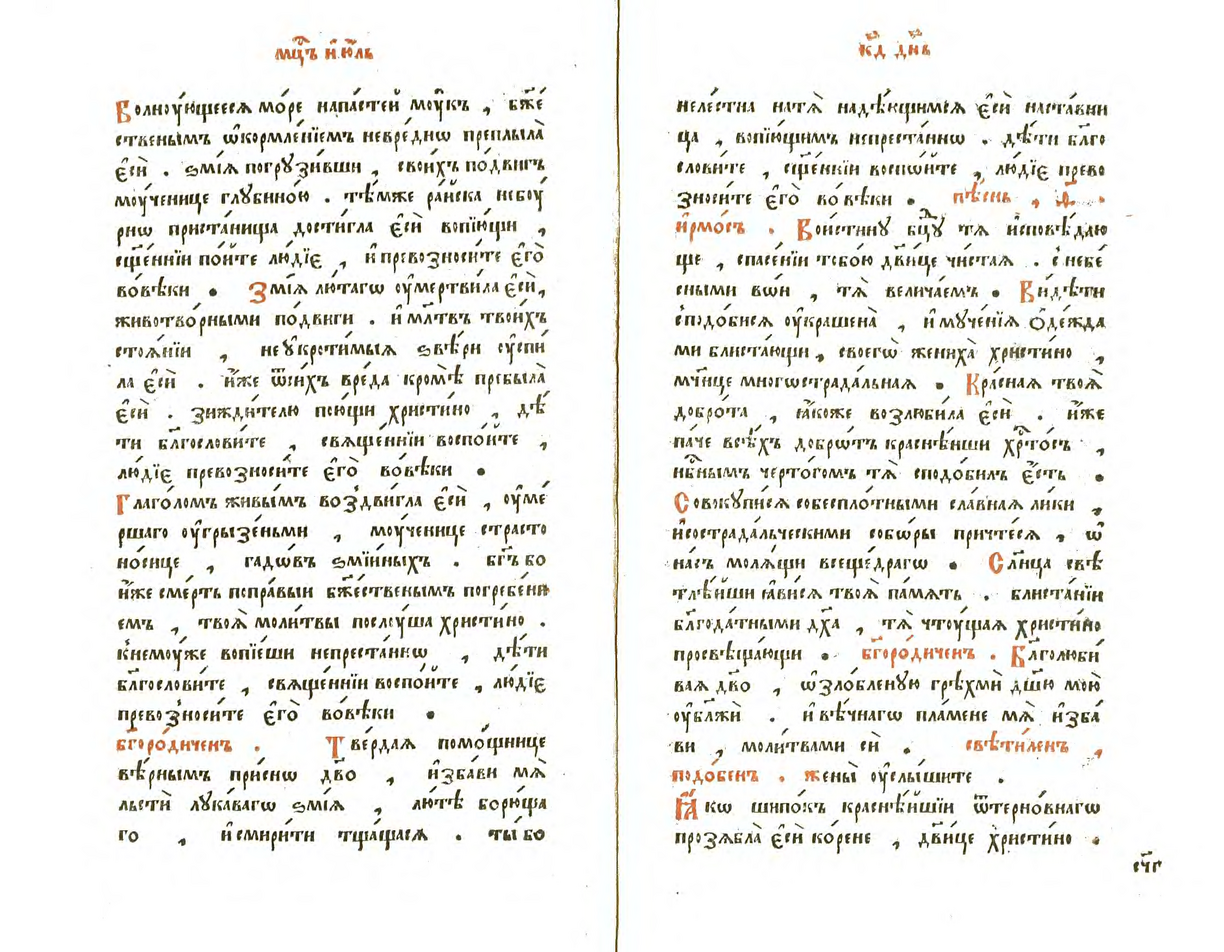 мц҃ъ і҆ю́ль
Волнꙋ́ющееся мо́ре напа́стей мꙋ́къ , бж҃е
ственымъ ѡ҆кормле́нїемъ невре́днѡ преплыла̀
є҆сѝ . ѕмі́ѧ погрꙋзи́вши , свои́хъ по́двигъ
моу́ченице глꙋбино́ю . тѣ́мже ра́йска небоу́
рнѡ приста́нища дости́гла є҆сѝ вопїю́щи ,
сщ҃е́ннїи по́йте лю́дїє , и҆ превозноси́те є҆го̀
во́вѣки . Змі́ѧ лю́тагѡ оу҆мертви́ла є҆сѝ,
животво́рными по́двиги . и҆ мл҃твъ твои́хъ
стоѧ́нїи , неꙋкроти́мыѧ ѕвѣ́ри оу҆спи́
ла є҆сѝ . и҆́же ѿси́хъ вре́да кромѣ̀ пребыла̀
є҆сѝ . зижди́телю пою́щи христи́но , дѣ́
ти благослови́те , свѧще́ннїи воспо́йте ,
лю́дїє превозноси́те є҆го̀ во́вѣки .
Глаго́ломъ живы́мъ воздви́гла є҆сѝ , оу҆ме́
ршаго оу҆грызе́ньми , моу́ченице страсто
но́сице , гадо́въ ѕмїи́ныхъ . бг҃ъ бо
и҆́же сме́рть попра́выи бж҃е́ственымъ погребе́нї
емъ , твоѧ̀ моли́твы послꙋша христи́но .
К немоу́же вопїе́ши непреста́ннѡ , дѣ́ти
благослови́те , свѧще́ннїи воспо́йте , лю́дїє
превозноси́те є҆го̀ во́вѣки .
бг҃оро́диченъ . Тве́рдаѧ помо́щнице
вѣ́рнымъ при́снѡ дв҃о , и҆зба́ви мѧ̀
льстѝ лꙋка́вагѡ ѕмі́ѧ , лю́тѣ борю́ща
го , и҆ смири́ти тща́щасѧ . ты́ бо
к҃д дн҃ь
неле́стна на тѧ̀ надѣ́ющимсѧ є҆сѝ наста́вни
ца , вопїю́щимъ непреста́ннѡ . дѣ́ти бл҃го
слови́те , сщ҃е́ннїи воспо́йте , лю́дїє прево
зноси́те є҆го̀ во́вѣки . пѣ́снь , ѳ҃ .
і҆рмо́съ . Вои́стинꙋ бц҃ꙋ тѧ̀ и҆сповѣ́даю
ще , спасе́нїи тобо́ю дв҃и́це чи́стаѧ . с небе́
сными во́и , тѧ̀ велича́емъ . Ви́дѣти
сподо́бисѧ оу҆кра́шена , и҆ мꙋче́нїѧ ѻ҆де́жда
ми блиста́ющи , своегѡ̀ жениха̀ христи́но ,
мч҃нице многострада́льнаѧ . Кра́снаѧ твоѧ̀
добро́та , ꙗ҆́коже возлюби́ла є҆сѝ . и҆́же
па́че всѣ́хъ добро́тъ краснѣ́йши хр҃то́съ ,
нб҃нымъ черто́гомъ тѧ̀ сподо́билъ є҆́сть .
Совокꙋпи́сѧ со бесплотными сла́внаѧ ли́ки ,
и҆ со страда́льческими собо́ры причте́сѧ , ѡ҆
на́съ молѧ́щи всеще́драгѡ . Сл҃нца свѣ
тлѣ́йши ꙗ҆ви́сѧ твоѧ̀ па́мѧть . блиста́нїи
благода́тными дх҃а , тѧ̀ чтоу́щаѧ христи́но
просвѣща́ющи . бг҃оро́диченъ . Бл҃голюби́
ваѧ дв҃о , ѡ҆зло́бленꙋю грѣхмѝ дш҃ю мою̀
оу҆блажѝ . и҆ вѣ́чнагѡ пла́мене мѧ̀ и҆зба́
ви , моли́твами сѝ . свѣти́ленъ ,
подо́бенъ . жены̀ оу҆слы́шите .
Ꙗ҆́кѡ шипо́къ краснѣ́йшїи ѿ терно́внагѡ
прозѧ́бла є҆сѝ ко́рене , дв҃и́це христи́но .
сч҃г